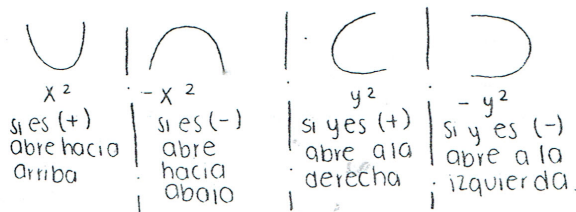 x²
si es (+)
abre hacia
arriba
-x²
si es (-)
abre
hacia
abajo
y²
si y es (+)
abre a la
derecha
- y²
si y es (-)
abre a la
izquierda.